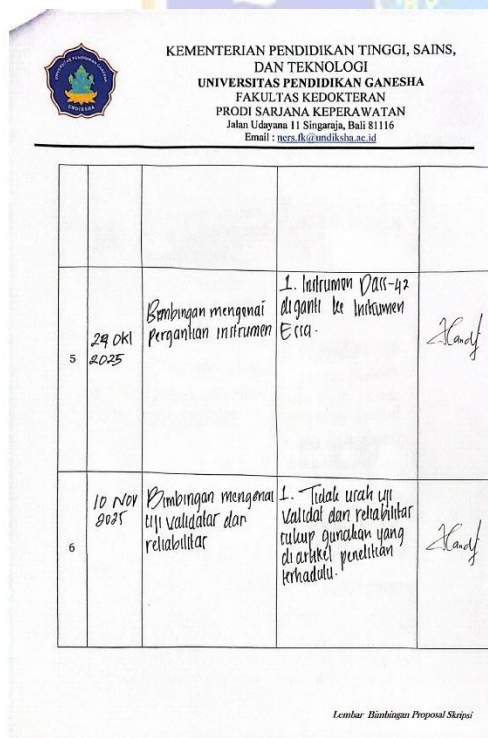 UNIVERSITAS PENDIDIKAN GANESHA
UNDIKSHA
KEMENTERIAN PENDIDIKAN TINGGI, SAINS,
DAN TEKNOLOGI
UNIVERSITAS PENDIDIKAN GANESHA
FAKULTAS KEDOKTERAN
PRODI SARJANA KEPERAWATAN
Jalan Udayana 11 Singaraja, Bali 81116
Email : ners.fk@undiksha.ac.id
5
29 Okt
2025
Bimbingan mengenai
pergantian instrumen
1. Instrumen Dass-42
diganti ke Instrumen
6
10 Nov
2025
Bimbingan mengenai
uji validatas dan
reliabilitas
1. Tidak usah uji
validat dan reliabilitas
cukup gunakan yang
di artikel penelitian
terhadulu.
Lembar Bimbingan Proposal Skripsi